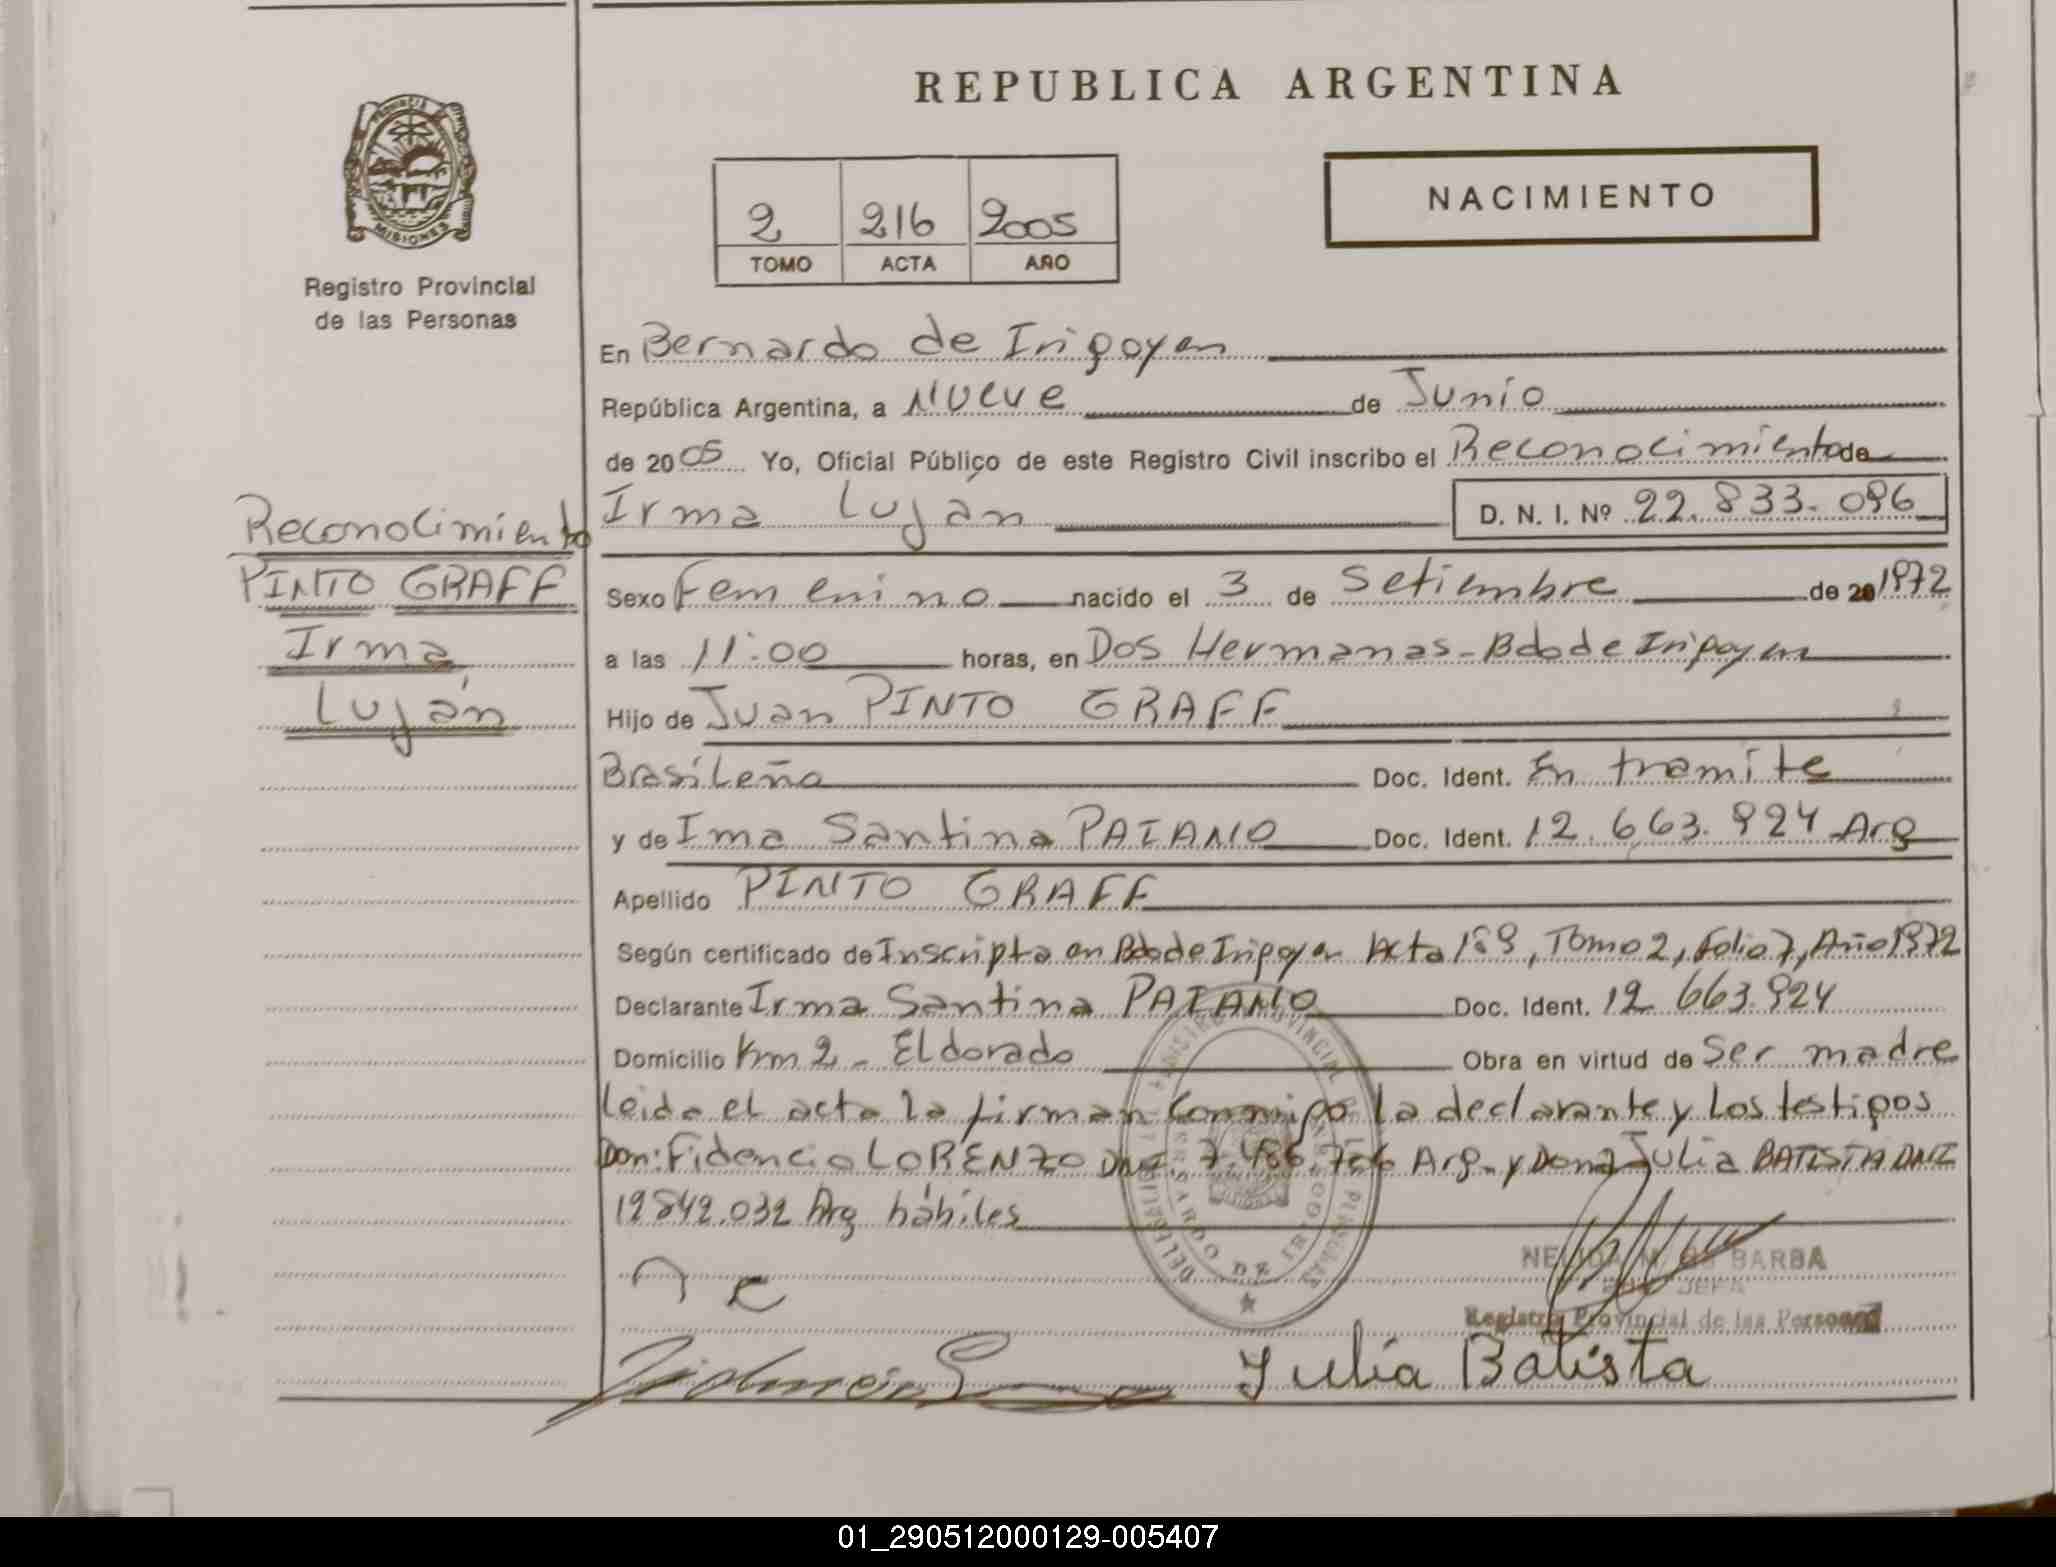 REPUBLICA ARGENTINA
NACIMIENTO
PROVINCIA
MISIONES
Registro Provincial
de las Personas
2 216 2005
TOMO ACTA AÑO
En Bernardo de Irigoyen
República Argentina, a Nueve de Junio
de 2005 Yo, Oficial Público de este Registro Civil inscribo el Reconocimiento de
Irma Luján D. N. I. Nº 22.833.096
Reconocimiento
PINTO GRAFF
Irma
Luján
Sexo Femenino nacido el 3 de Setiembre de 20 1972
a las 11:00 horas, en Dos Hermanas - Bdo de Irigoyen
Hijo de Juan PINTO GRAFF
Brasileña Doc. Ident. En tramite
y de Ima Santina PAIANO Doc. Ident. 12.663.924 Arg
Apellido PINTO GRAFF
Según certificado de Inscripta en Bdo de Irigoyen Acta 189, Tomo 2, Folio 7, Año 1972
Declarante Irma Santina PAIANO Doc. Ident. 12 663.924
Domicilio Km 2 - Eldorado Obra en virtud de Ser madre
Leida el acta la firman conmigo la declarante y Los testigos
Don: Fidencio LORENZO DNI. 7.486.766 Arg. y Dona Julia BATISTA DNI
12842.032 Arg hábiles
NELIDA M. BARBA
JEFA
Registro Provincial de las Personas
Julia Batista
01_290512000129-005407